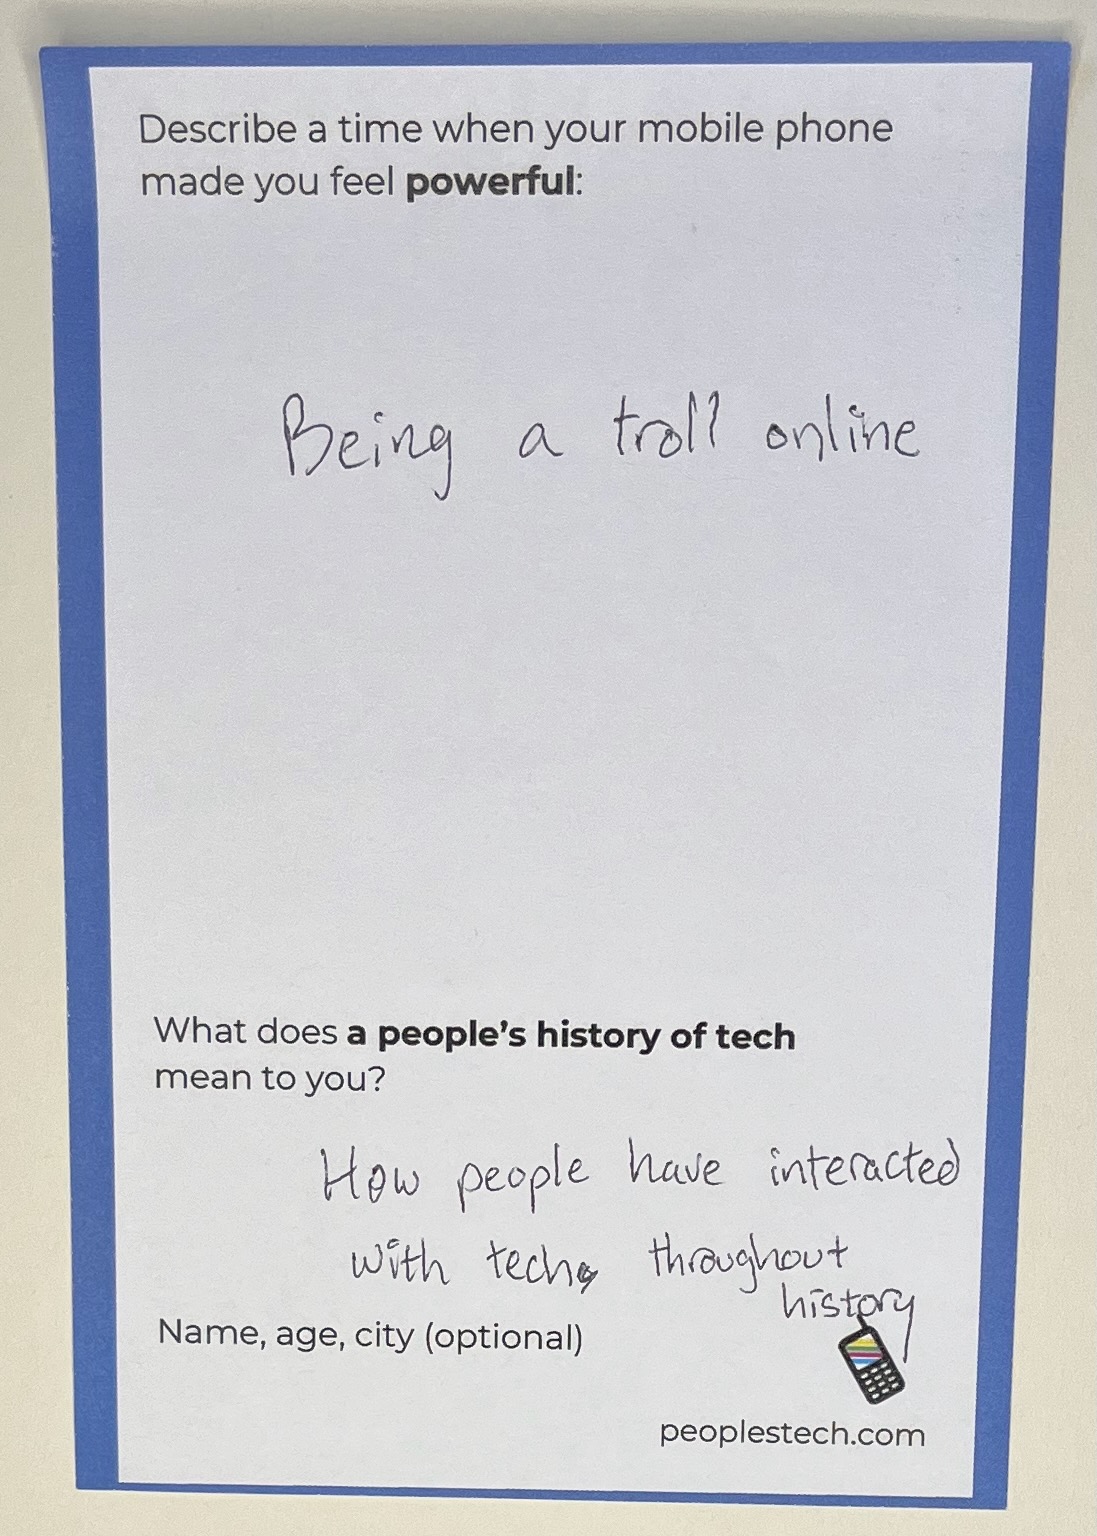 Describe a time when your mobile phone
made you feel powerful:
Being a troll online
What does a people's history of tech
mean to you?
How people have interacted
with tech throughout
history
Name, age, city (optional)
peoplestech.com